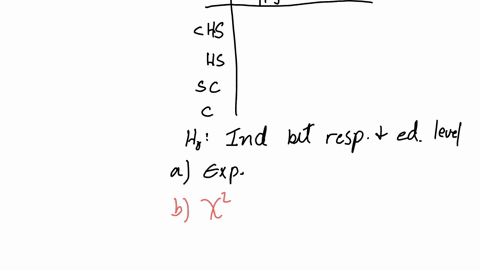 <HS
HS
SC
C
H₀: Ind bet resp. + ed. level
a) Exp.
b) χ²